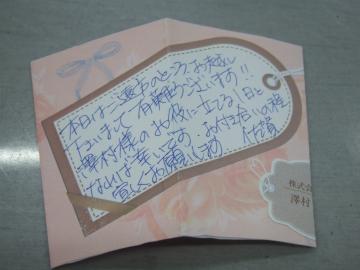 本日はご遠方のところ、お越し
下さいまして有難うございます!!
奥村様のお役に立てる1日と
なれば幸いです。お付き合いの程
宜しくお願いします
佐賀
株式会
澤村